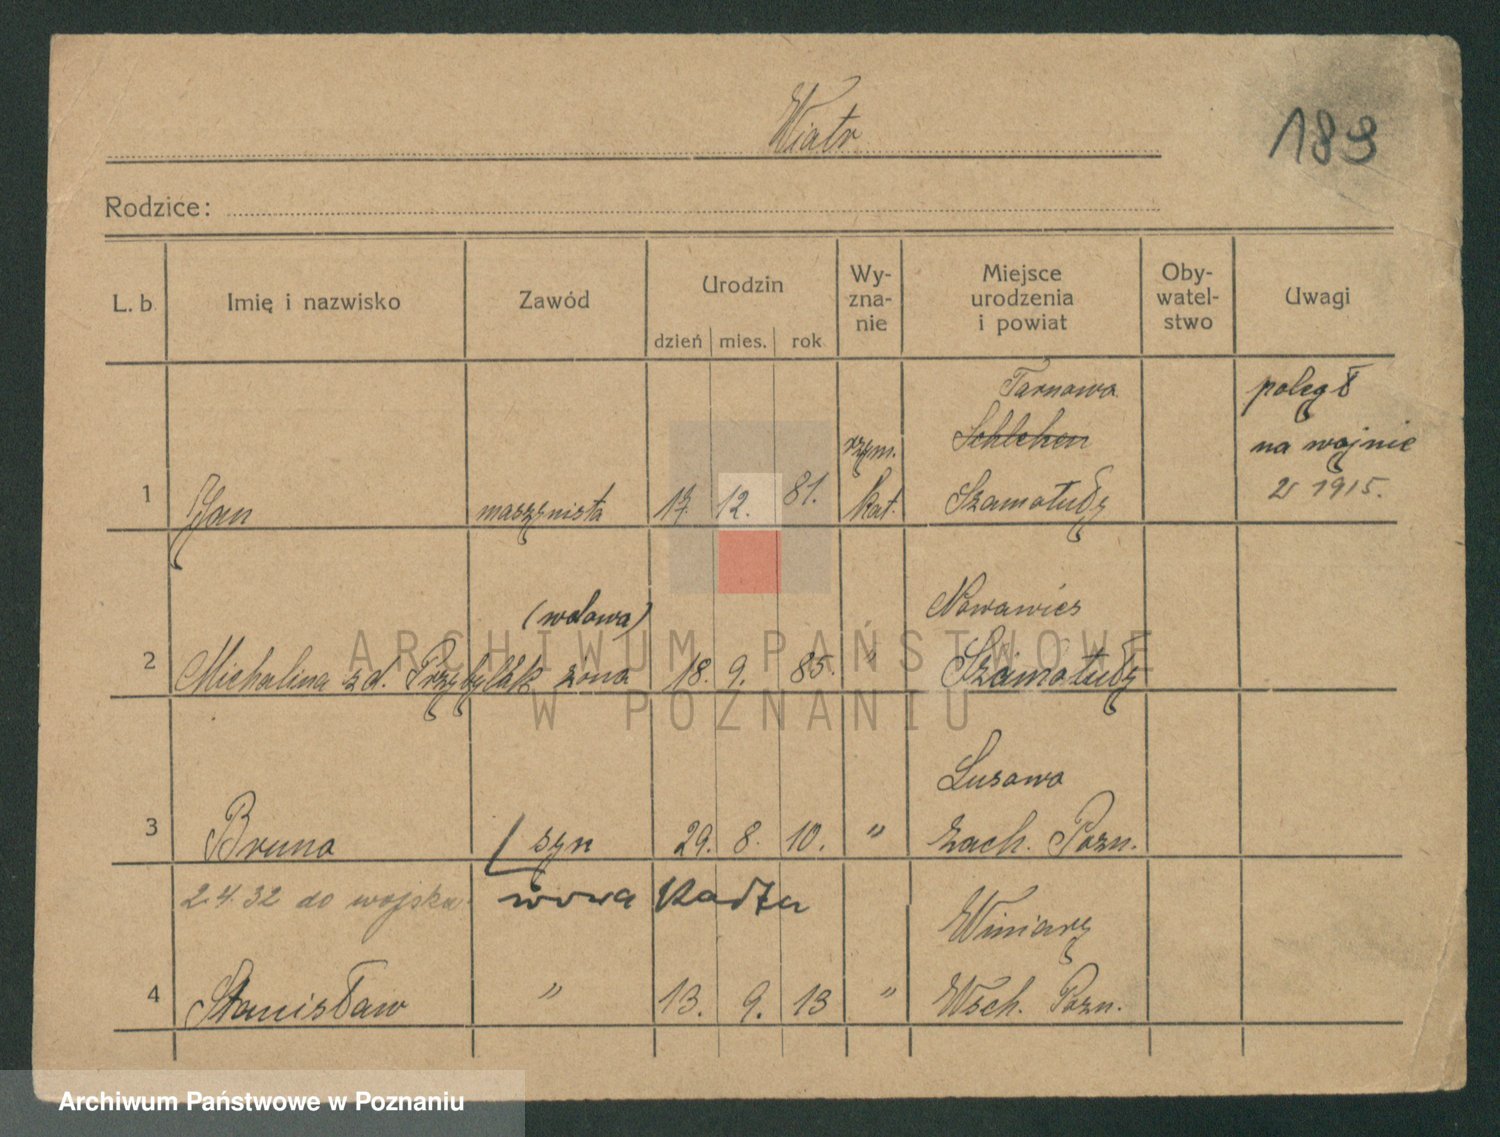 Wiatr
189
Rodzice:
L. b. Imię i nazwisko Zawód Urodzin dzień mies. rok Wy-zna-nie Miejsce urodzenia i powiat Oby-watel-stwo Uwagi
Tarnowo poległ
rzym. na wojnie
1 Jan maszynista 17. 12. 81. kat. Szamotuły 1915.
(wdowa) Nowawieś
2 Michalina zd. Przybylak żona 18. 9. 85. " Szamotuły
Lusowo
3 Bruno syn 29. 8. 10. " zach. Pozn.
2.4.32 do wojska nowa Winiary
4 Stanisław " 13. 9. 13 " Wsch. Pozn.
ARCHIWUM PAŃSTWOWE
W POZNANIU
Archiwum Państwowe w Poznaniu